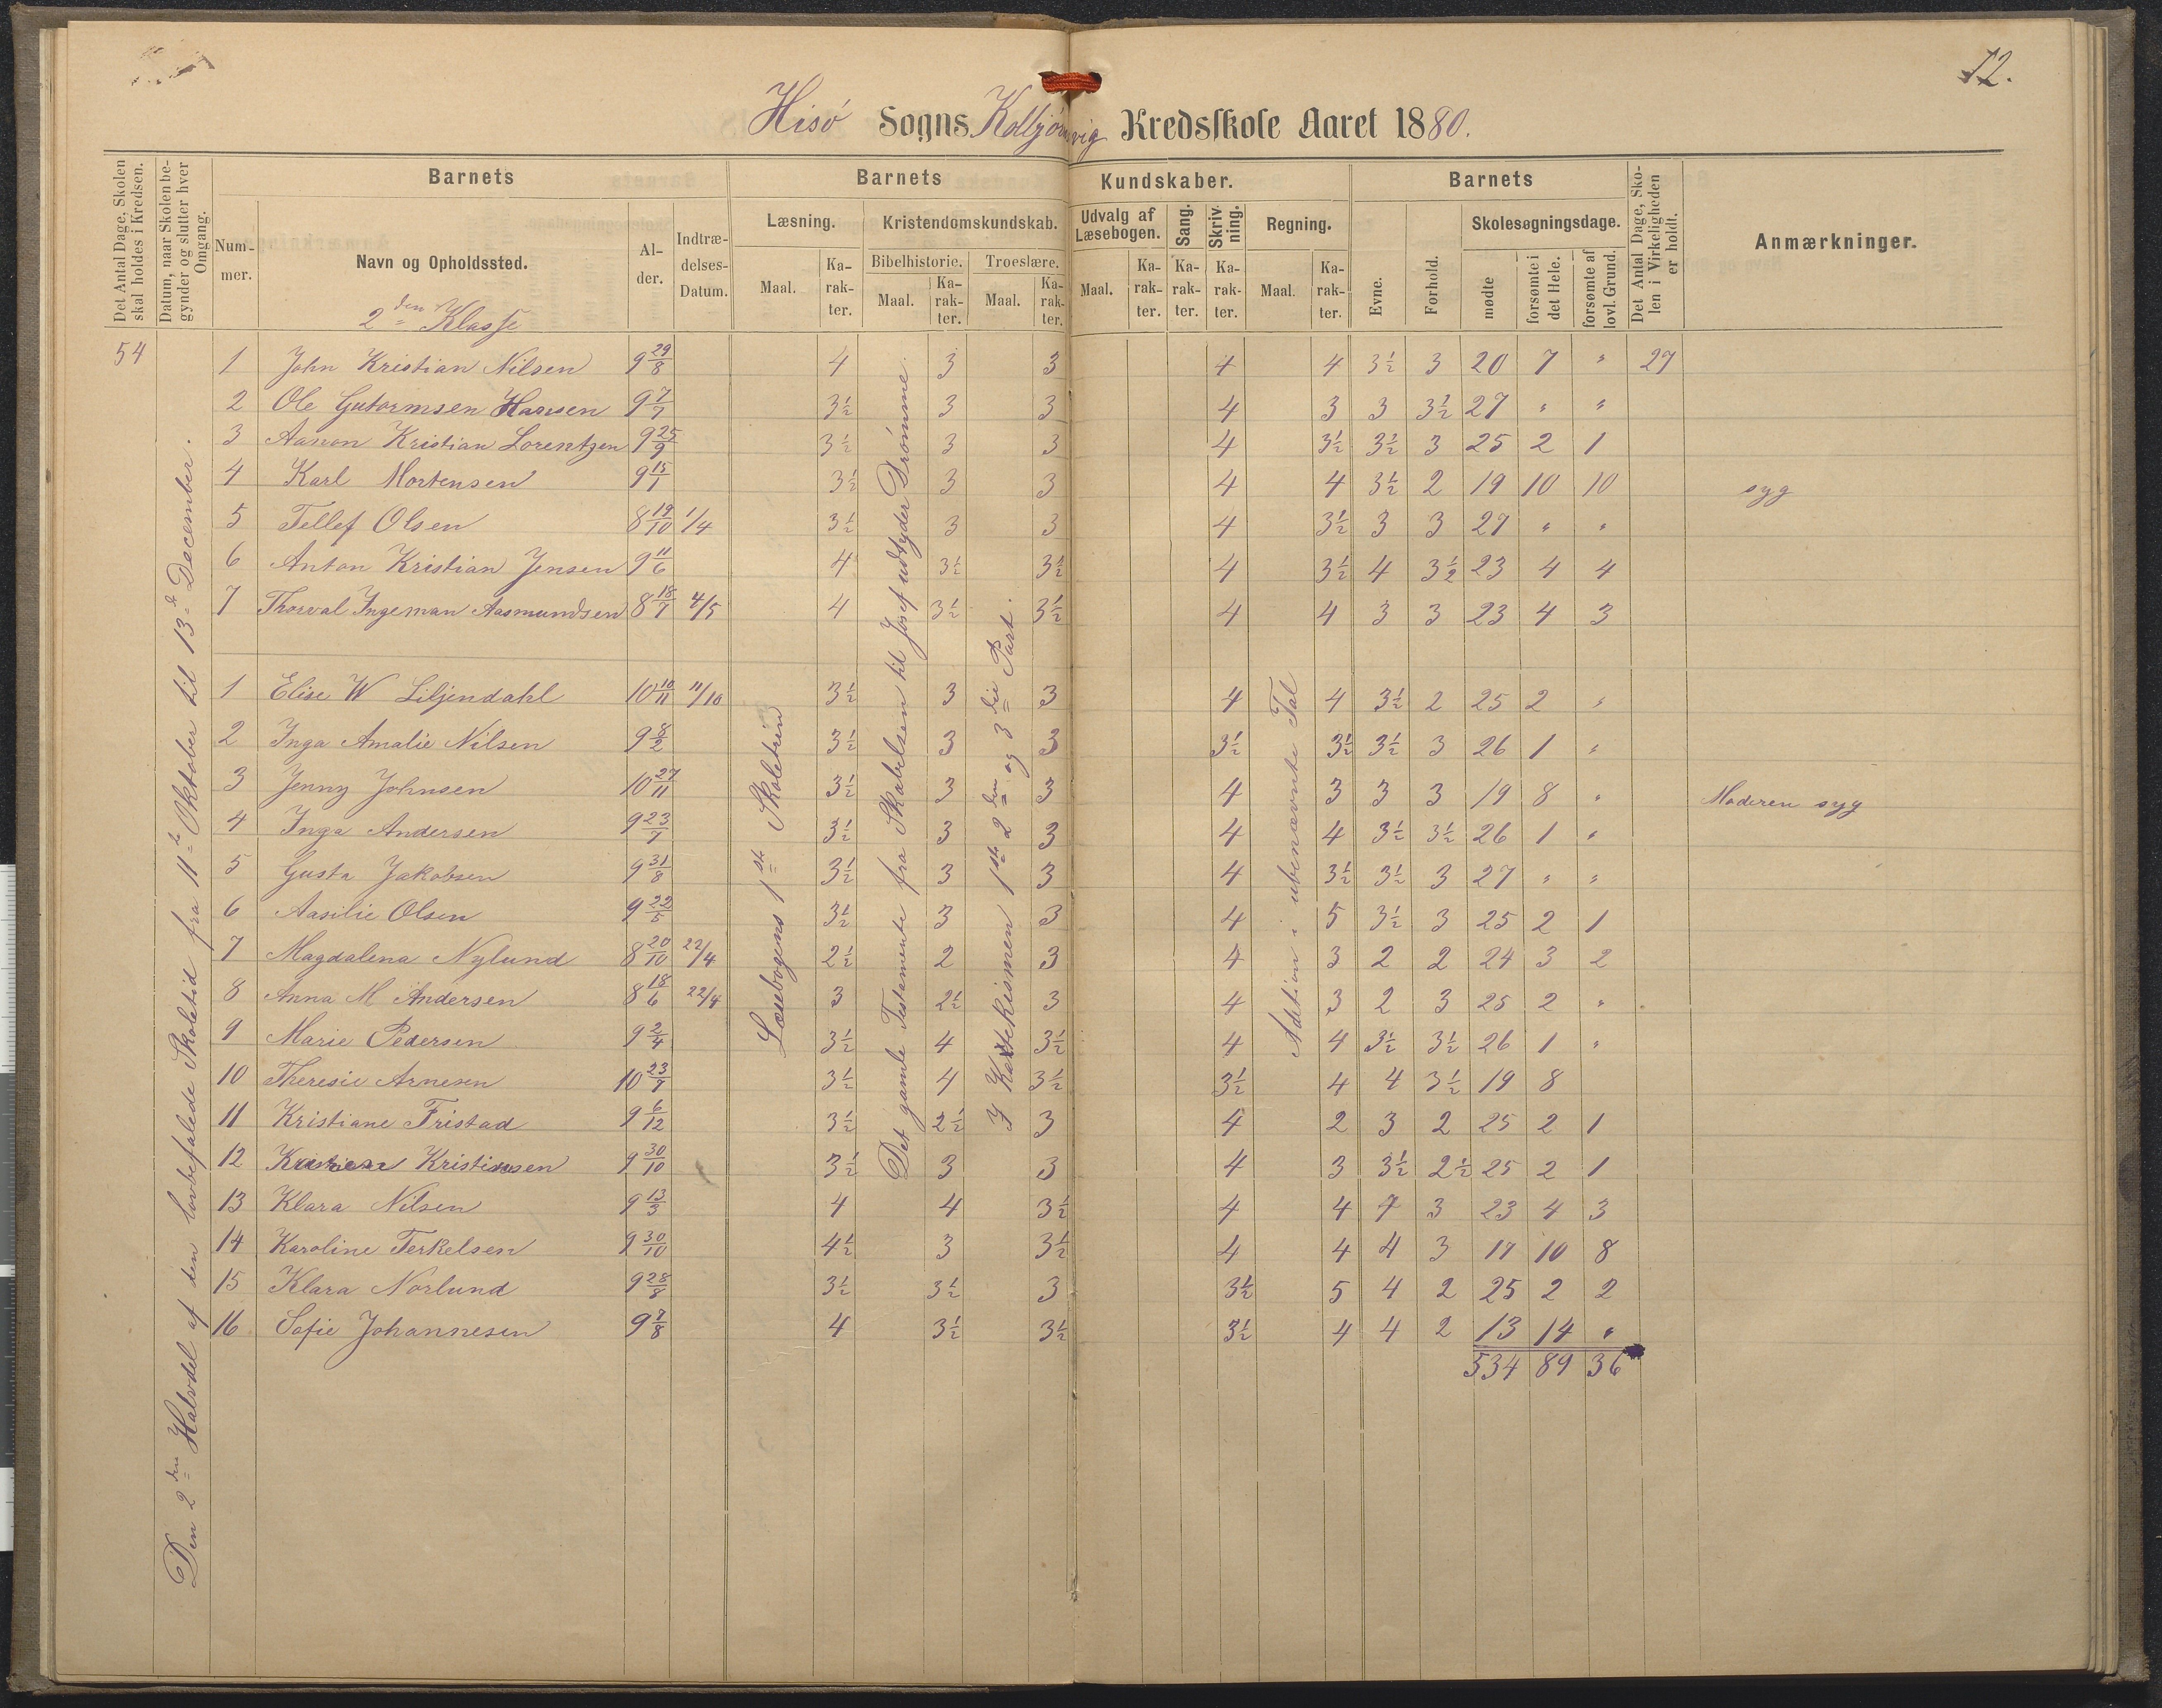 12.
Hisö Sogns Kolbjörnsvig Kredsskole Aaret 1880.
Det Antal Dage, Skolen skal holdes i Kredsen.
Datum, naar Skolen begynder og slutter hver Omgang.
Barnets
Nummer.
Navn og Opholdssted.
Alder.
Indtrædelses-Datum.
Barnets Kundskaber.
Læsning.
Maal.
Karakter.
Kristendomskundskab.
Bibelhistorie.
Maal.
Karakter.
Troeslære.
Maal.
Karakter.
Udvalg af Læsebogen.
Maal.
Karakter.
Sang.
Karakter.
Skrivning.
Karakter.
Regning.
Maal.
Karakter.
Barnets
Evne.
Forhold.
Skolesøgningsdage.
mødte
forsømte i det Hele.
forsømte af lovl. Grund.
Det Antal Dage, Skolen i Virkeligheden er holdt.
Anmærkninger.
2den Klasse
54
Den 2den Halvdel af den lovbefalede Skoletid fra 11te Oktober til 13de December.
Læsebogens 1ste Skoletrin
Det gamle Testamente fra Skabelsen til Josef udtyder Drømme.
I Katekismen 1ste 2den og 3die Part.
Adition i ubenævnte Tal
1 John Kristian Nilsen 9 29/8 4 3 3 4 4 3½ 3 20 7 " 27
2 Ole Gutormsen Hansen 9 7/7 3½ 3 3 4 3 3 3½ 27 " "
3 Aanon Kristian Lorentzen 9 25/9 3½ 3 3 4 3½ 3½ 3 25 2 1
4 Karl Mortensen 9 15/1 3½ 3 3 4 4 3½ 2 19 10 10 syg
5 Tellef Olsen 8 19/10 1/4 3½ 3 3 4 3½ 3 3 27 " "
6 Anton Kristian Jensen 9 11/6 4 3½ 3½ 4 3½ 4 3½ 23 4 4
7 Thorval Ingeman Aasmundsen 8 18/7 4/5 4 3½ 3½ 4 4 3 3 23 4 3
1 Elise W Liljendahl 10 10/11 11/10 3½ 3 3 4 4 3½ 2 25 2 "
2 Inga Amalie Nilsen 9 8/2 3½ 3 3 3½ 3½ 3½ 3 26 1 "
3 Jenny Johnsen 10 27/11 3½ 3 3 4 3 3 3 19 8 " Moderen syg
4 Inga Andersen 9 23/7 3½ 3 3 4 4 3½ 3½ 26 1 "
5 Gusta Jakobsen 9 31/8 3½ 3 3 4 3½ 3½ 3 27 " "
6 Aasilie Olsen 9 22/5 3½ 3 3 4 5 3½ 3 25 2 1
7 Magdalena Nylund 8 20/10 22/4 2½ 2 3 4 3 2 2 24 3 2
8 Anna M Andersen 8 18/6 22/4 3 2½ 3 4 3 2 3 25 2 "
9 Marie Pedersen 9 2/4 3½ 4 3½ 4 4 3½ 3½ 26 1 "
10 Theresie Arnesen 10 23/7 3½ 4 3½ 3½ 4 4 3½ 19 8
11 Kristiane Fristad 9 6/12 3½ 2½ 3 4 2 3 2 25 2 1
12 Kristinsen 9 30/10 3½ 3 3 4 3 3½ 2½ 25 2 1
13 Klara Nilsen 9 13/3 4 4 3½ 4 4 4 3 23 4 3
14 Karoline Terkelsen 9 30/10 4½ 3 3½ 4 4 4 3 17 10 8
15 Klara Norlund 9 28/8 3½ 3½ 3 3½ 5 4 2 25 2 2
16 Sofie Johannesen 9 7/8 4 3½ 3½ 3½ 4 4 2 13 14 "
534 89 36